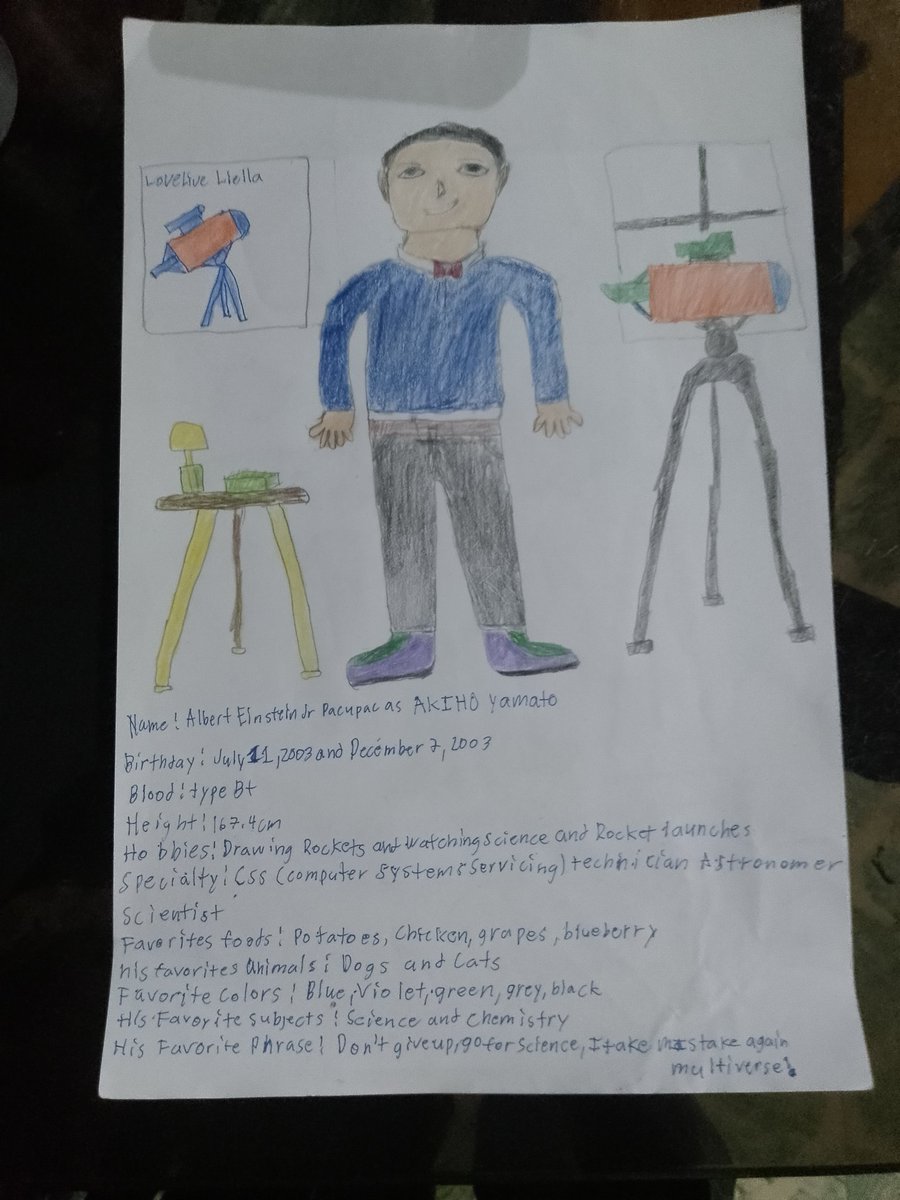 Lovelive Liella
Name! Albert Einstein Jr Pacupac as AKIHO Yamato
Birthday! July 11, 2003 and December 7, 2003
Blood! type B+
Height! 167.4cm
Hobbies! Drawing Rockets and Watching Science and Rocket launches
Specialty! Css (computer systems servicing) technician Astronomer
Scientist
Favorites foods! Potatoes, Chicken, grapes, blueberry
his favorites Animals! Dogs and Cats
Favorite Colors! Blue, Violet, green, grey, black
His Favorite subjects! Science and Chemistry
His Favorite Phrase! Don't give up, go for Science, I take mistake again
multiverse!